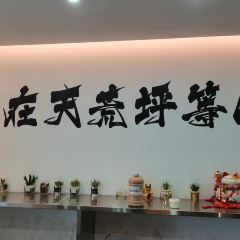 在天荒坪等